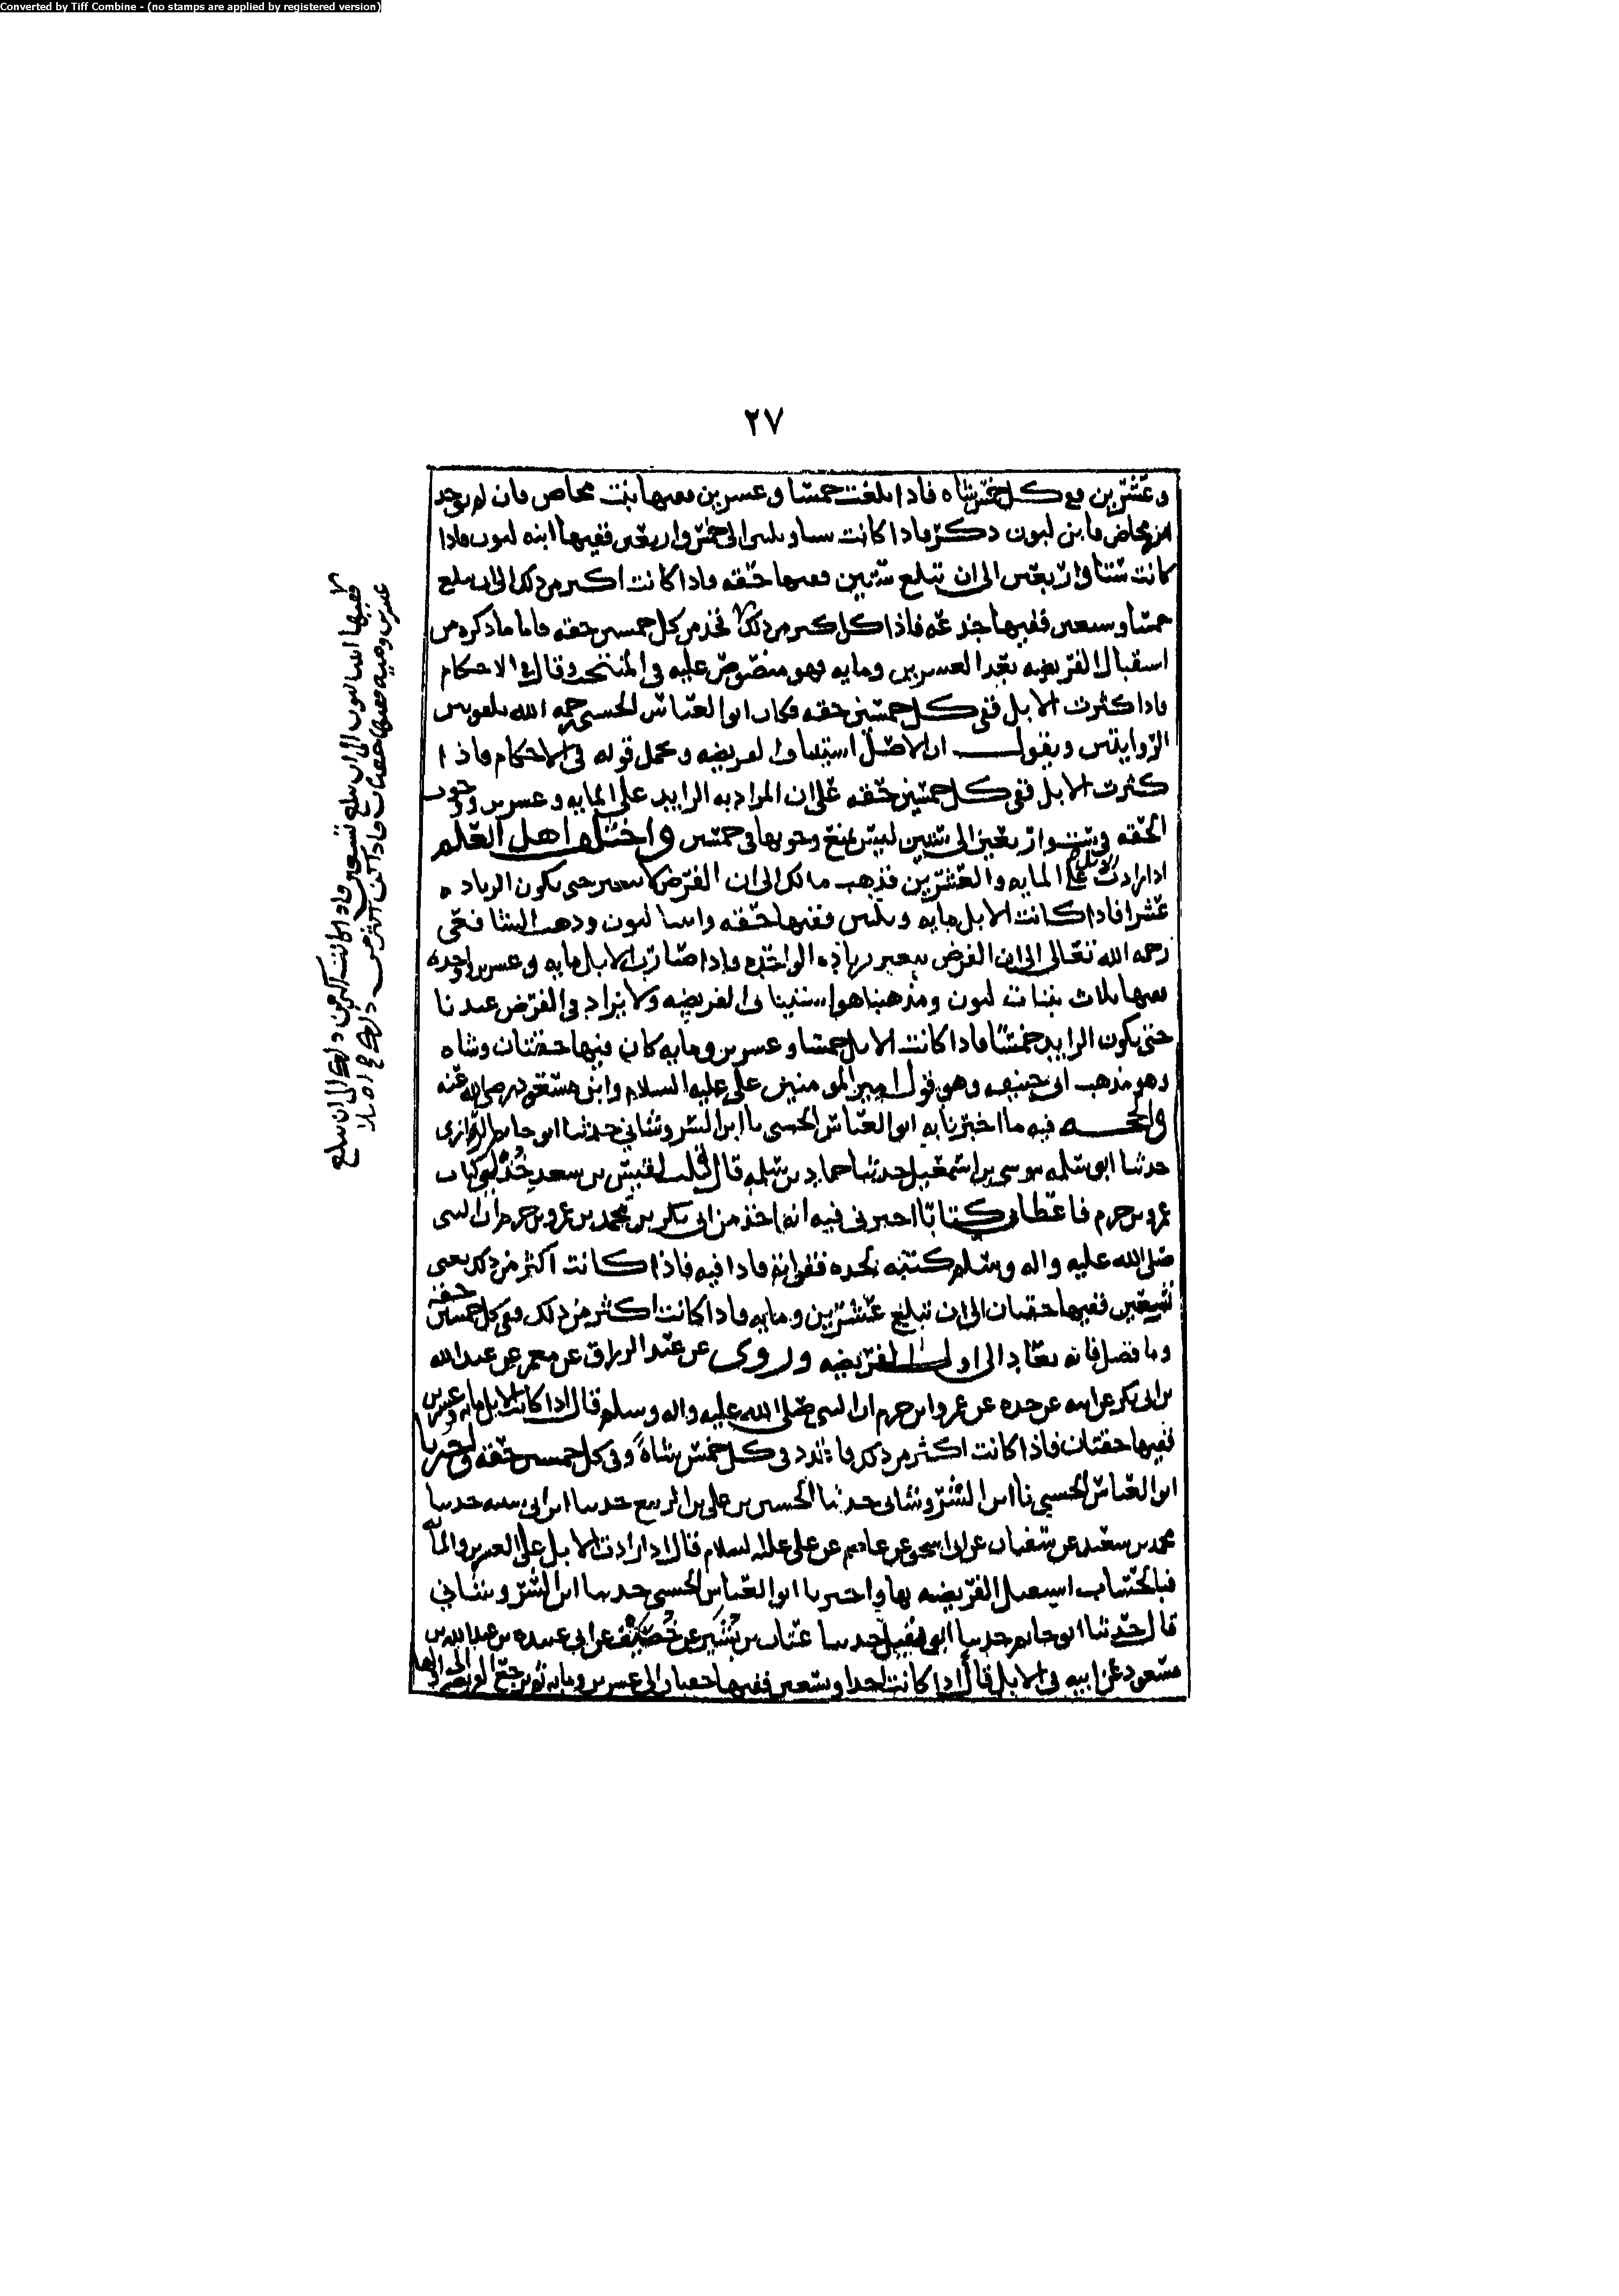 Converted by Tiff Combine - (no stamps are applied by registered version)
٢٧
وعشرين في كل خمس شاه فاذا بلغت خمسا وعشرين ففيها بنت مخاض فان لم يوجد
مخاض فابن لبون ذكر فاذا كانت ستا وثلثين الى خمس واربعين ففيها ابنه لبون فاذا
كانت ستا واربعين الى ان تبلغ ستين ففيها حقه فاذا كانت اكثر من ذلك الى ان تبلغ
خمسا وسبعين ففيها جذعه فاذا كان اكثر من ذلك فخذ من كل خمسين حقه فاما ما ذكره من
استقبال الفريضه بعد العشرين ومايه فهو منصوص عليه في المنتخب وقال في الاحكام
فاذا كثرت الابل ففي كل خمسين حقه فكان ابو العباس الحسني رحمه الله
الروايتين ويقول ان الاصل استيناف الفريضه ويحمل قوله في الاحكام فاذا
كثرت الابل ففي كل خمسين حقه على ان المراد به الزايد على المايه وعشرين ووجوب
الحقه في ست واربعين الى ستين ليس يمنع وجوبها في خمسين واختلف اهل العلم
اذا زادت الابل على المايه والعشرين فذهب مالك الى ان الفرض لا يتغير حتى يكون الزياده
عشرا فاذا كانت الابل مايه وثلثين ففيها حقه وابنتا لبون وذهب الشافعي
رحمه الله تعالى الى ان الفرض يتغير بزياده الواحده فاذا صارت الابل مايه وعشرين وواحده
ففيها ثلاث بنات لبون ومذهبنا هو استيناف الفريضه ولا يزاد في الفرض عندنا
حتى يكون الزايد خمسا فاذا كانت الابل خمسا وعشرين ومايه كان فيها حقتان وشاه
وهو مذهب ابي حنيفه وهو قول امير المومنين علي عليه السلام وابن مسعود رضي الله عنه
والحجه فيه ما اخبرنا به ابو العباس الحسني نا ابن الشروشاني حدثنا ابو حاتم الرازي
حدثنا ابو سلمه موسى بن اسمعيل حدثنا حماد بن سلمه قال قلت لقيس بن سعد خذ لي كتاب
عمرو بن حزم فاعطاني كتابا اخبرني فيه انه اخذ من ابي بكر بن محمد بن عمرو بن حزم ان النبي
صلى الله عليه واله وسلم كتبه لجده فقراته فاذا فيه فاذا كانت اكثر من ذلك يعني
تسعين ففيها حقتان الى ان تبلغ عشرين ومايه فاذا كانت اكثر من ذلك ففي كل خمسين حقه
وما فضل فانه يعاد الى اول الفريضه وروى عن عبد الرزاق عن معمر عن عبد الله
بن ابي بكر عن ابيه عن جده عن عمرو ابن حزم ان النبي صلى الله عليه واله وسلم قال اذا كانت الابل مايه وعشرين
ففيها حقتان فاذا كانت اكثر من ذلك في كل خمس شاة وفي كل خمسين حقه واخبرنا
ابو العباس الحسني نا ابن الشروشاني حدثنا الحسين بن علي بن الربيع حدثنا ابن ابي شيبه حدثنا
محمد بن سعيد عن سفيان عن ابي اسحق عن عاصم عن علي عليه السلام قال اذا زادت الابل على العشرين والمايه
فبالحساب استقبل الفريضه بها واخبرنا ابو العباس الحسني حدثنا ابن الشروشاني
قال حدثنا ابو حاتم حدثنا حدثنا عتاب بن بشير عن خصيف عن ابي عبيده بن عبد الله بن
مسعود عن ابيه في الابل قال اذا كانت احدا وتسعين ففيها حقتان الى عشرين ومايه ثم ترجع الفريضه الى اولها
ففيها ابنتا لبون الى ان تبلغ تسعين فاذا كانت اكثر من ذلك الى ان تبلغ
عشرين وميه ففيها حقتان فاذا كانت اكثر من ذلك